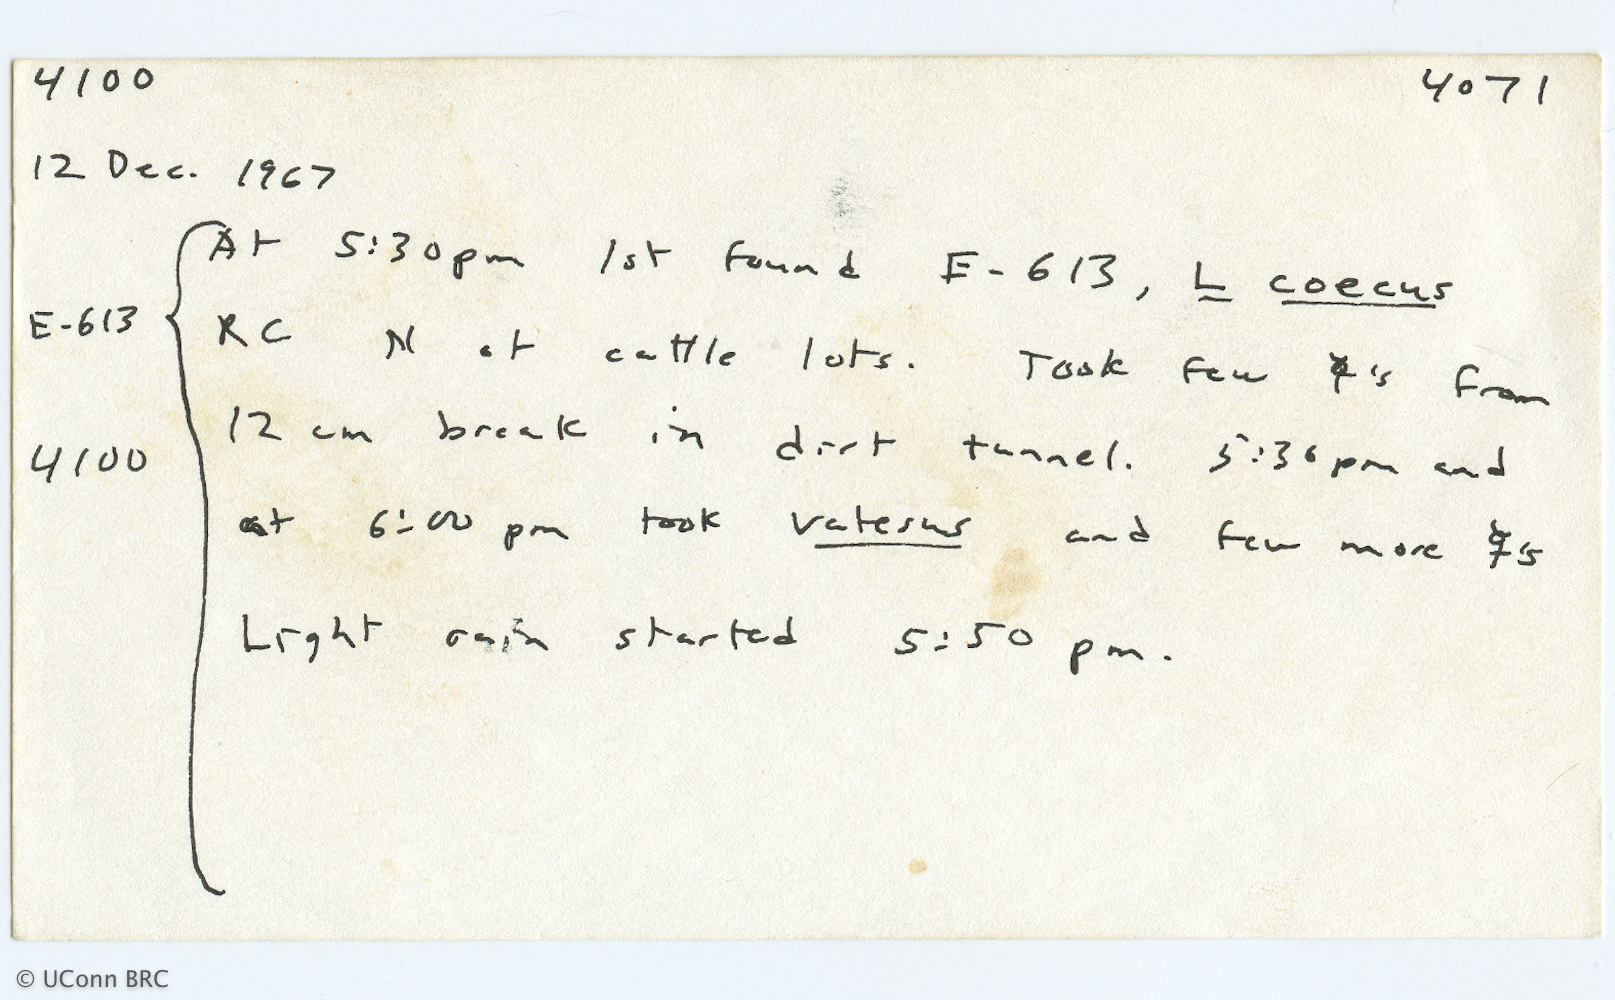 4100 4071
12 Dec. 1967
At 5:30pm 1st found E-613, L coecus
E-613 RC N at cattle lots. Took few ☿'s from
12 cm break in dirt tunnel. 5:30pm and
4100
at 6:00 pm took vatesus and few more ☿'s
Light rain started 5:50 pm.
© UConn BRC